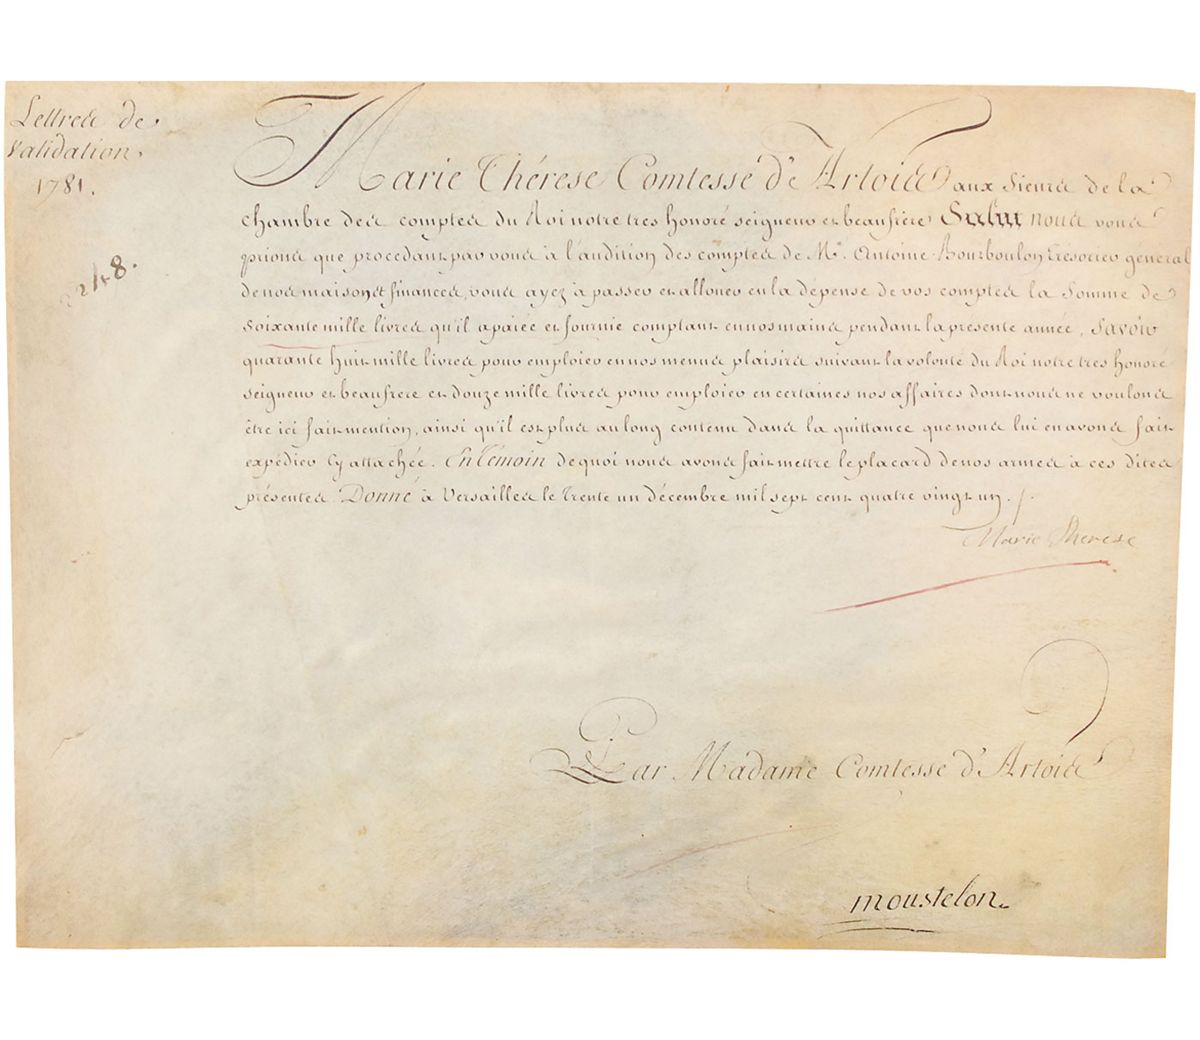 Lettres de
Validation
1781.
2248.
Marie Thérese Comtesse d'Artois aux Sieurs de la
chambre des comptes du Roi notre tres honoré seigneur et beaufrère Salut nous vous
prions que procedant par vous à l'audition des comptes de Mr. Antoine Bourboulon Trésorier général
de nos maison et finances, vous ayez à passer et allouer en la dépense de vos comptes la Somme de
Soixante mille livres qu'il a paiée et fournie comptant en nos mains pendant la presente année, Savoir
quarante huit mille livres pour emploier en nos menus plaisirs suivant la volonté du Roi notre tres honoré
seigneur et beaufrere et douze mille livres pour emploier en certaines nos affaires dont nous ne voulons
être ici fait mention, ainsi qu'il est plus au long contenu dans la quittance que nous lui en avons fait
expédier Cy attachée. En Témoin de quoi nous avons fait mettre le placard de nos armes à ces dites
présentes Donné à Versailles le Trente un décembre mil sept cent quatre vingt un ./.
Marie Therese
Par Madame Comtesse d'Artois
moustelon.